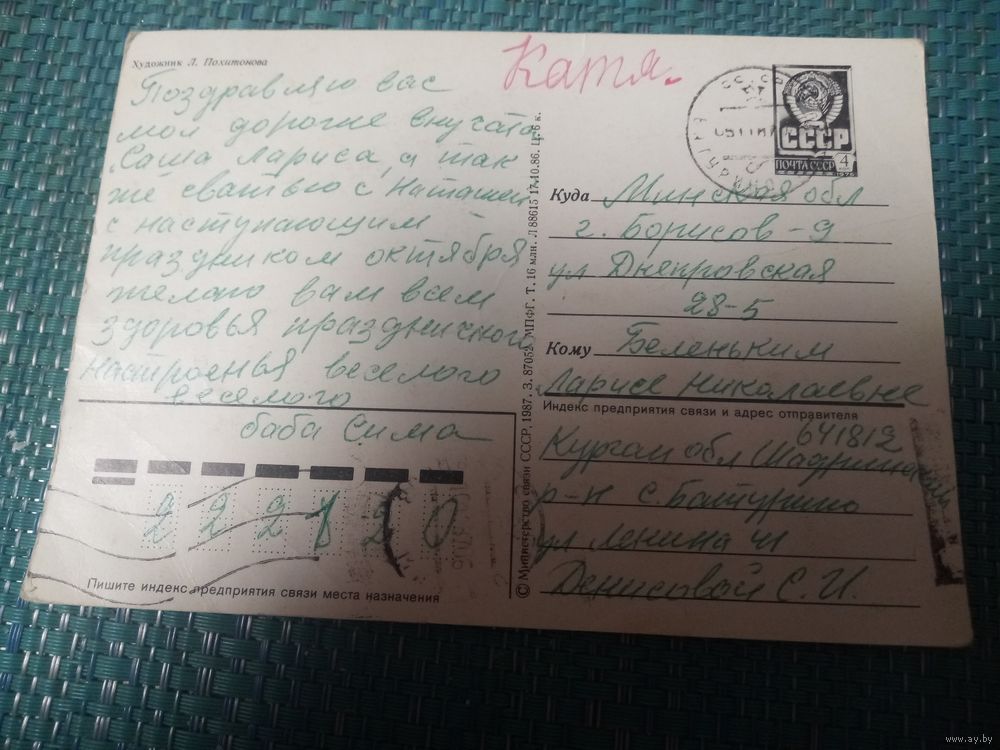 Художник Л. Похитонова
Катя.
Поздравляю вас
мои дорогие внучата
Саша Лариса, а так
же сватью с Наташей
с наступающим
праздником октября
желаю вам всем
здоровья праздничного
настроенья веселого
веселого
баба Сима
222120
Пишите индекс предприятия связи места назначения
© Министерство связи СССР, 1987. З. 87052. МПФГ. Т. 16 млн. Л 88615 17.10.86. Ц. 6 к.
СССР
ПОЧТА СССР 4
1976
Куда Минская обл
г. Борисов-9
ул Днепровская
28-5
Кому Беленьким
Ларисе Николаевне
Индекс предприятия связи и адрес отправителя
641812
Курган обл Шадринский
р-н с. Батурино
ул Ленина 41
Денисовой С. И.
www.ay.by